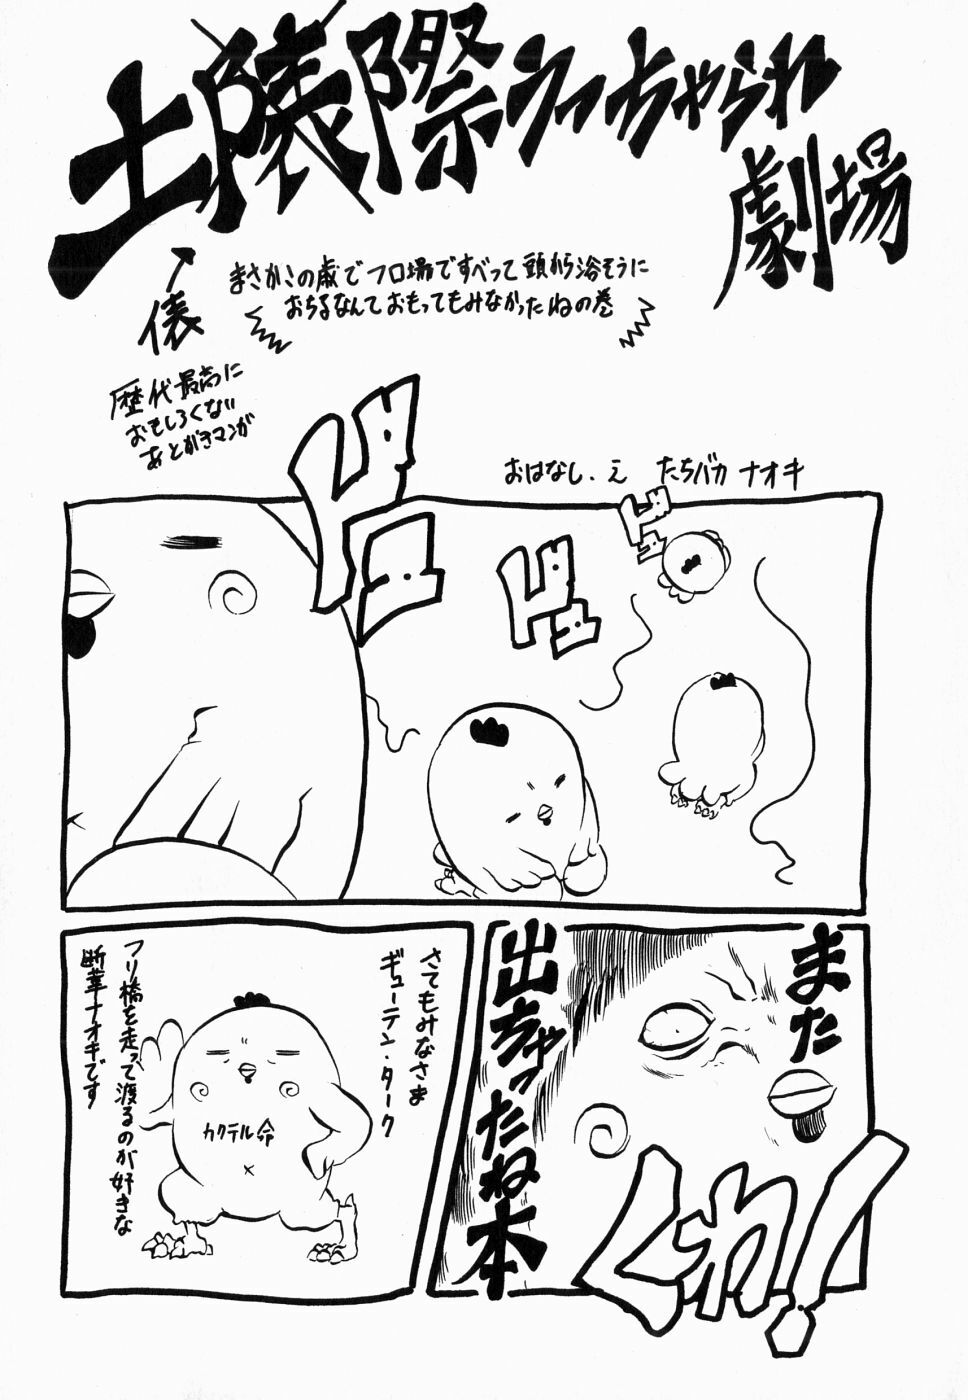 土隷際うっちゃられ
劇場
俵
まさかこの歳でフロ場ですべって頭から浴そうに
おちるなんておもってもみなかったねの巻
歴代最高に
おもしろくない
あとがきマンガ
おはなし.え たちバカ ナオキ
ドドドドド
また
出ちゃったね本
くわ!
さてもみなさま
ギューテン・ターク
カクテル命
フリ橋を走って渡るのが好きな
断華ナオキです